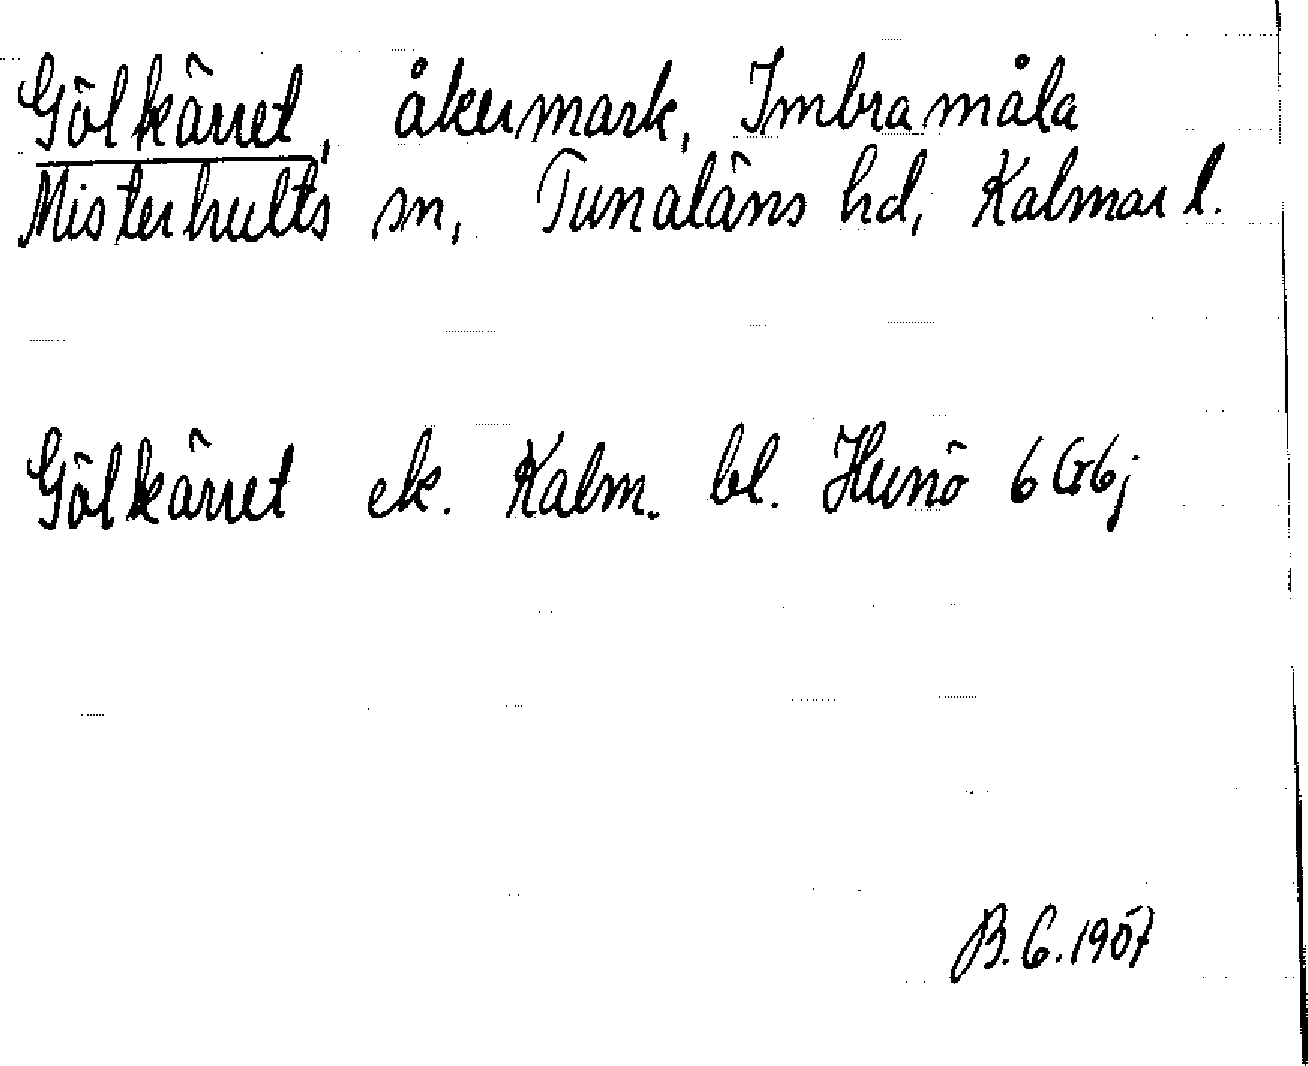 Gölkärret, åkermark, Imbramåla
Misterhults sn, Tunaläns hd, Kalmar l.
Gölkärret ek. Kalm. bl. Hunö 6 G6j
B.G. 1907